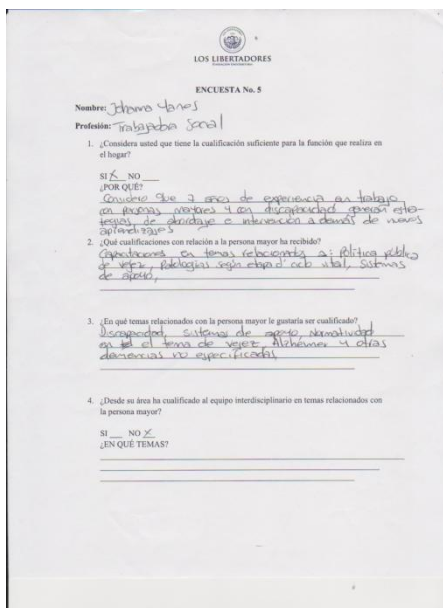 LOS LIBERTADORES
ENCUESTA No. 5
Nombre: Johanna Yanes
Profesión: Trabajadora Social
1. ¿Considera usted que tiene la cualificación suficiente para la función que realiza en
el hogar?
SI X NO
¿POR QUÉ?
Considero que 7 años de experiencia en trabajo
con personas mayores y con discapacidad generan estra-
tegias de abordaje e intervención además de nuevos
aprendizajes
2. ¿Qué cualificaciones con relación a la persona mayor ha recibido?
Capacitaciones en temas relacionados a: Política pública
de vejez, Patologías según etapa d' ciclo vital, Sistemas
de apoyo,
3. ¿En qué temas relacionados con la persona mayor le gustaría ser cualificado?
Discapacidad, sistemas de apoyo, Normatividad
en el tema de vejez, Alzheimer y otras
demencias no especificadas,
4. ¿Desde su área ha cualificado al equipo interdisciplinario en temas relacionados con
la persona mayor?
SI NO X
¿EN QUÉ TEMAS?